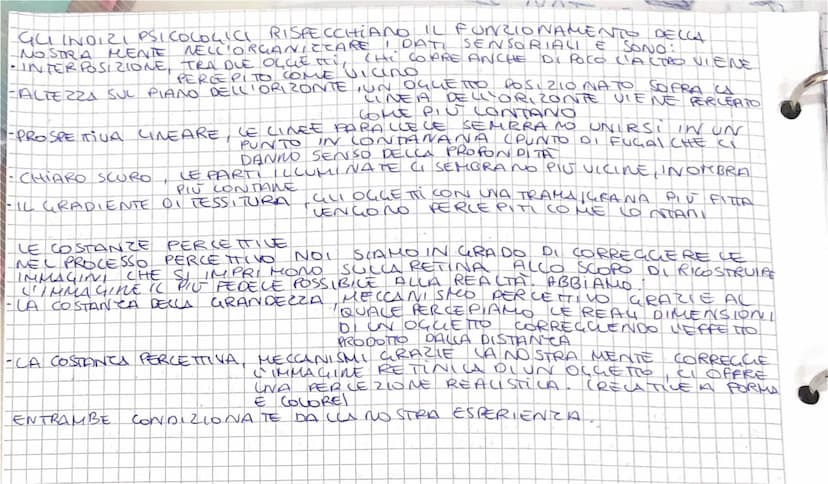 GLI INDIZI PSICOLOGICI RISPECCHIANO IL FUNZIONAMENTO DELLA
NOSTRA MENTE NELL'ORGANIZZARE I DATI SENSORIALI E SONO:
- INTERPOSIZIONE, TRA DUE OGGETTI, CHI COPRE ANCHE DI POCO L'ALTRO VIENE
PERCEPITO COME VICINO
- ALTEZZA SUL PIANO DELL'ORIZONTE, UN OGGETTO POSIZIONATO SOPRA LA
LINEA DELL'ORIZONTE VIENE PERCEPITO
COME PIÙ LONTANO
- PROSPETIVA LINEARE, LE LINEE PARALLELE SEMBRANO UNIRSI IN UN
PUNTO IN LONTANANA (PUNTO DI FUGA) CHE CI
DANNO SENSO DELLA PROFONDITÀ
- CHIARO SCURO, LE PARTI ILLUMINATE CI SEMBRANO PIÙ VICINE, IN OMBRA
PIÙ LONTANE
- IL GRADIENTE DI TESSITURA, GLI OGGETTI CON UNA TRAMA/GRANA PIÙ FITTA
VENGONO PERCEPITI COME LONTANI
LE COSTANZE PERCETTIVE
NEL PROCESSO PERCETTIVO NOI SIAMO IN GRADO DI CORREGGERE LE
IMMAGINI CHE SI IMPRIMONO SULLA RETINA ALLO SCOPO DI RICOSTRUIRE
L'IMMAGINE IL PIÙ FEDELE POSSIBILE ALLA REALTÀ. ABBIAMO:
- LA COSTANZA DELLA GRANDEZZA, MECCANISMO PERCETTIVO GRAZIE AL
QUALE PERCEPIAMO LE REALI DIMENSIONI
DI UN OGGETTO CORREGGENDO L'EFFETTO
PRODOTTO DALLA DISTANZA
- LA COSTANZA PERCETTIVA, MECCANISMI GRAZIE LA NOSTRA MENTE CORREGGE
L'IMMAGINE RETINICA DI UN OGGETTO, CI OFFRE
UNA PERCEZIONE REALISTICA. (RELATIVE A FORMA
E COLORE)
ENTRAMBE CONDIZIONATE DALLA NOSTRA ESPERIENZA.